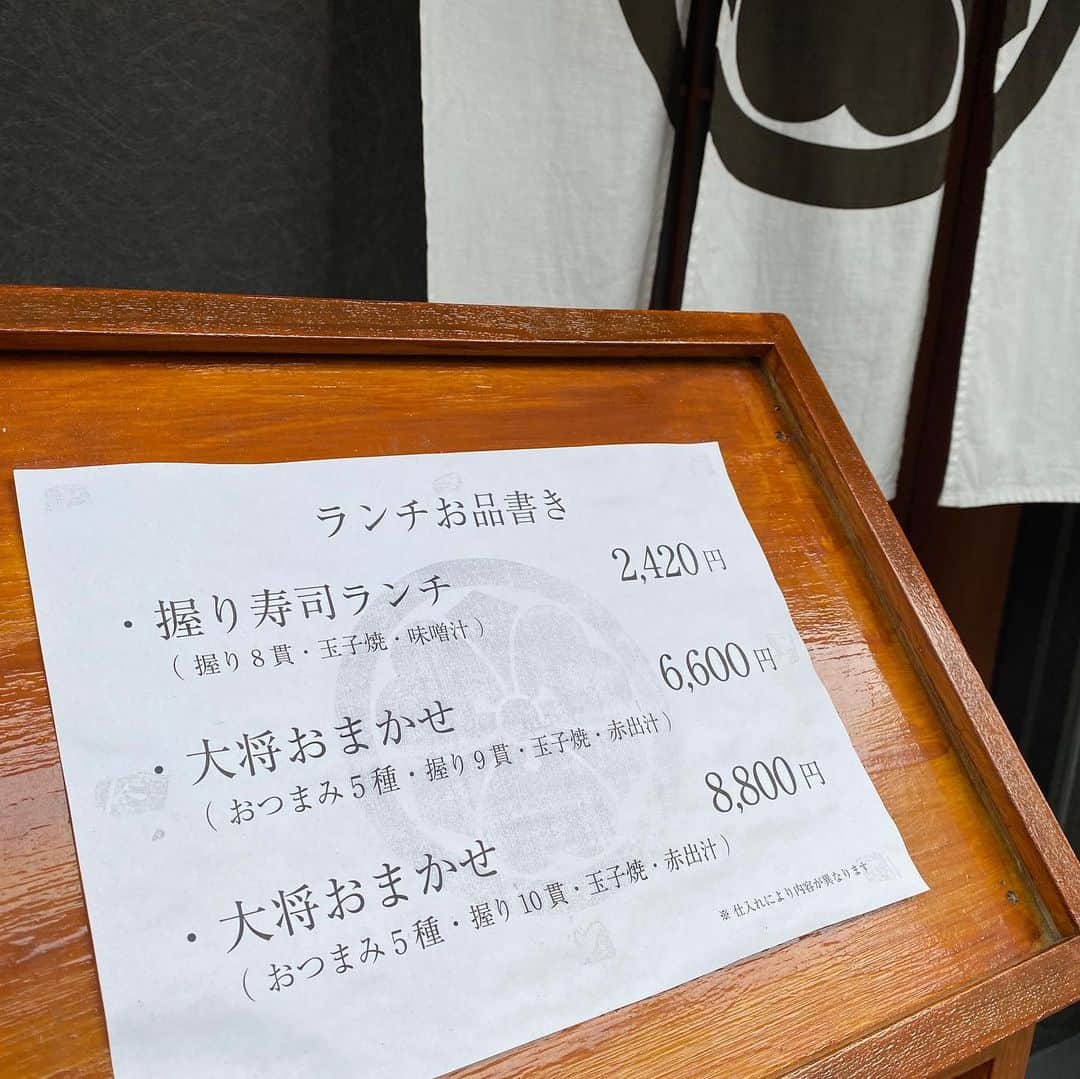 ランチお品書き
・握り寿司ランチ 2,420円
（握り8貫・玉子焼・味噌汁）
・大将おまかせ 6,600円
（おつまみ5種・握り9貫・玉子焼・赤出汁）
・大将おまかせ 8,800円
（おつまみ5種・握り10貫・玉子焼・赤出汁）
※仕入れにより内容が異なります